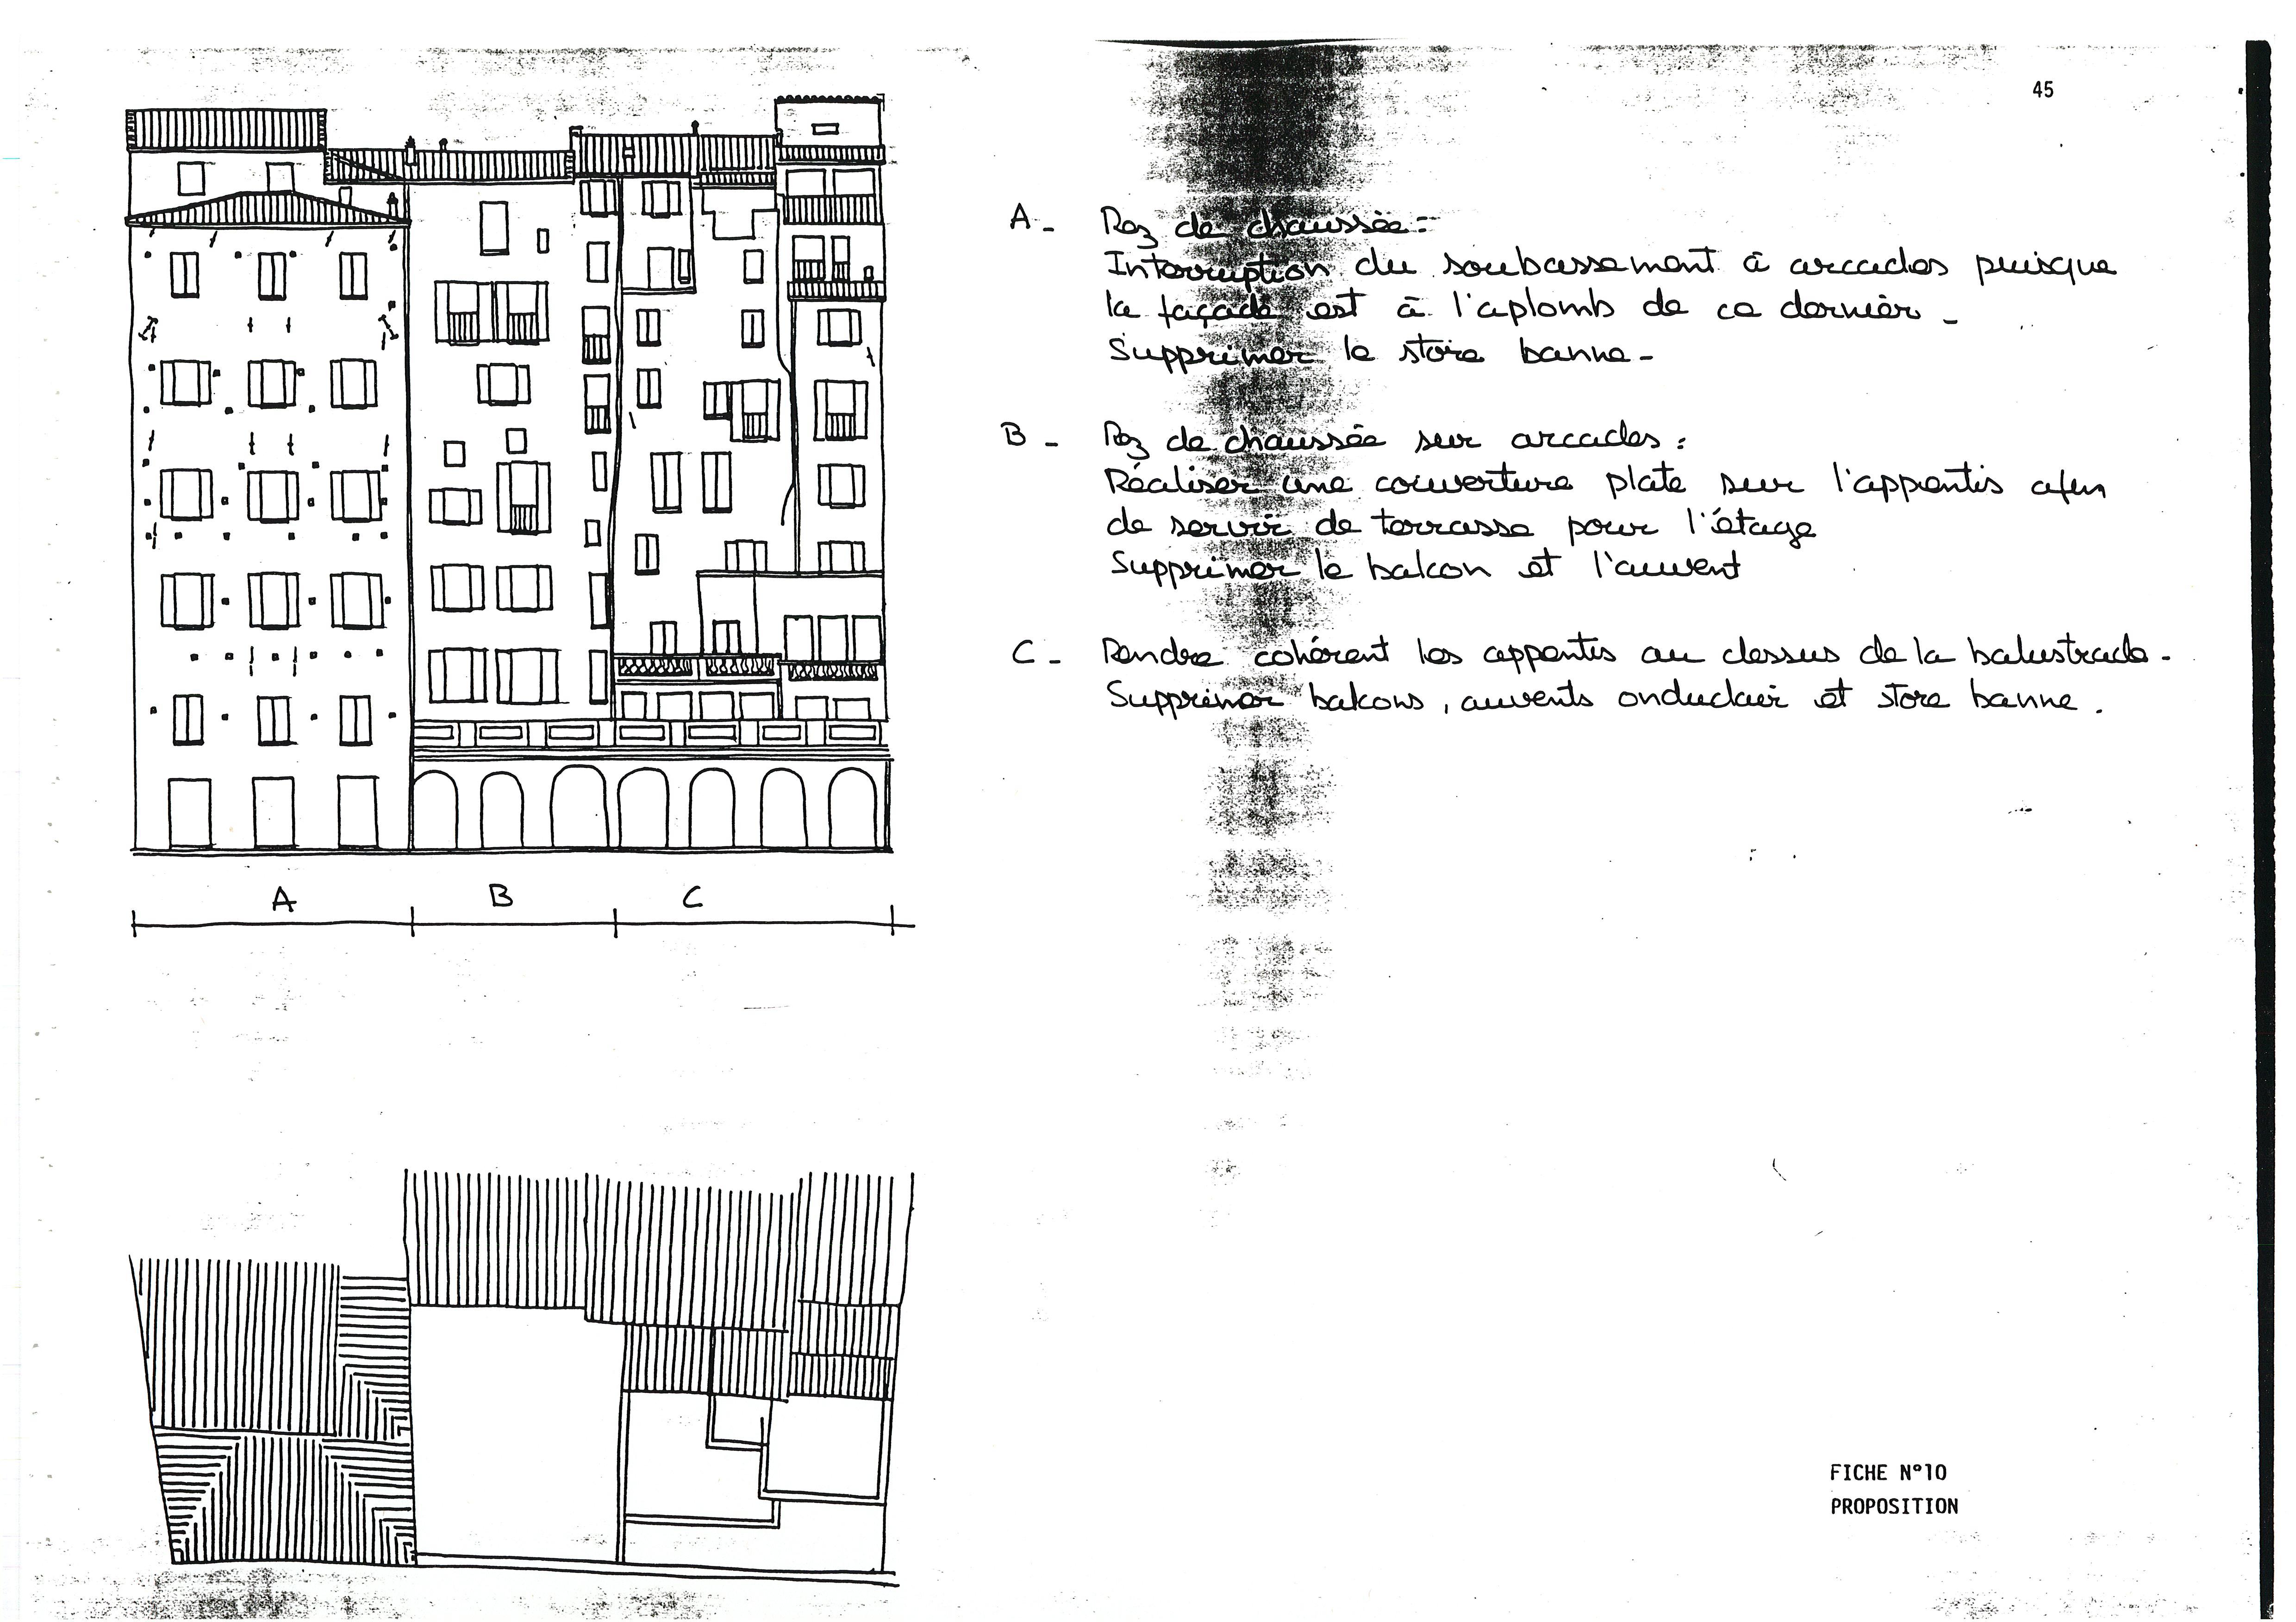 45
A - Rez de chaussée :
Interruption du soubassement à arcades puisque
la façade est à l'aplomb de ce dernier -
Supprimer le store banne -
B - Rez de chaussée sur arcades :
Réaliser une couverture plate sur l'appentis afin
de servir de terrasse pour l'étage
Supprimer le balcon et l'auvent
C - Rendre cohérent les appentis au dessus de la balustrade -
Supprimer balcons, auvents onduclair et store banne .
A B C
FICHE N°10
PROPOSITION